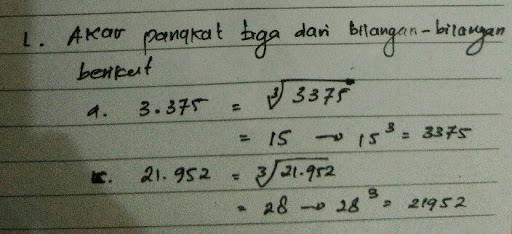 1. Akar pangkat tiga dari bilangan-bilangan
berikut
a. 3.375 = ∛3375
= 15 → 15³ = 3375
c. 21.952 = ∛21.952
= 28 → 28³ = 21952